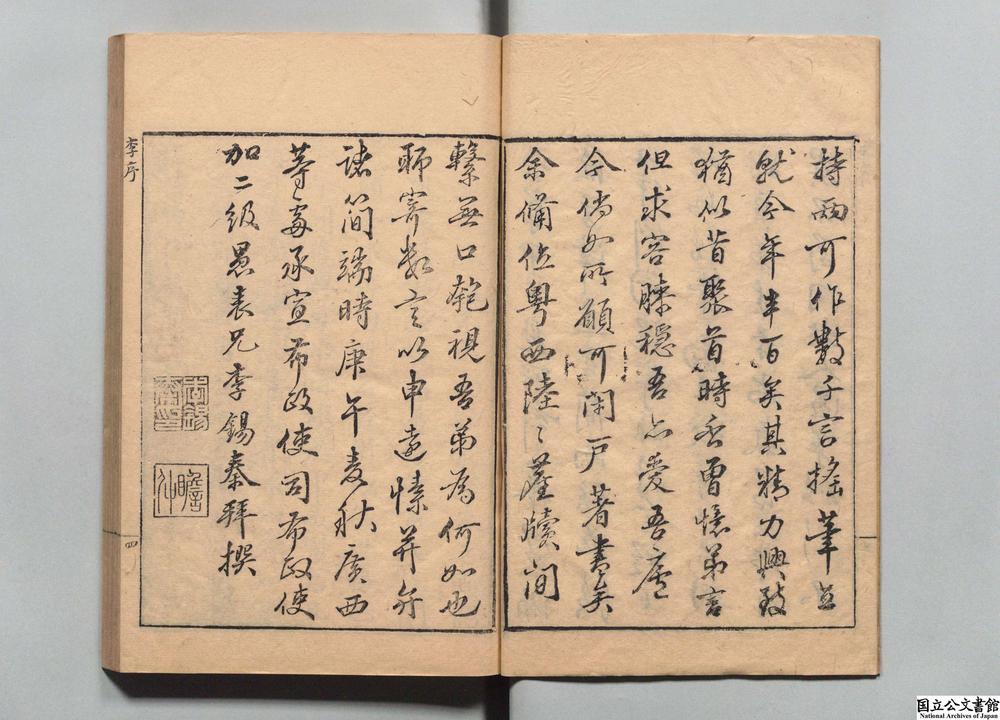 持兩可作數千言搖筆立
就今年半百矣其精力興致
猶似昔聚首時否曾憶弟言
但求容膝穩吾亦愛吾廬
今倘如所願可閉戶著書矣
余備位粵西陸陸薄牘間
繫無口匏視吾弟爲何如也
聊寄數言以申遠愫并弁
諸簡端時庚午麦秋廣西
等處承宣布政使司布政使
加二級愚表兄李錫秦拜撰
李序
四
国立公文書館
National Archives of Japan